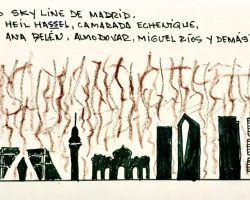 SKYLINE DE MADRID.
HEIL HASSEL, CAMARADA ECHENIQUE,
ANA BELÉN, ALMODOVAR, MIGUEL RÍOS Y DEMÁS